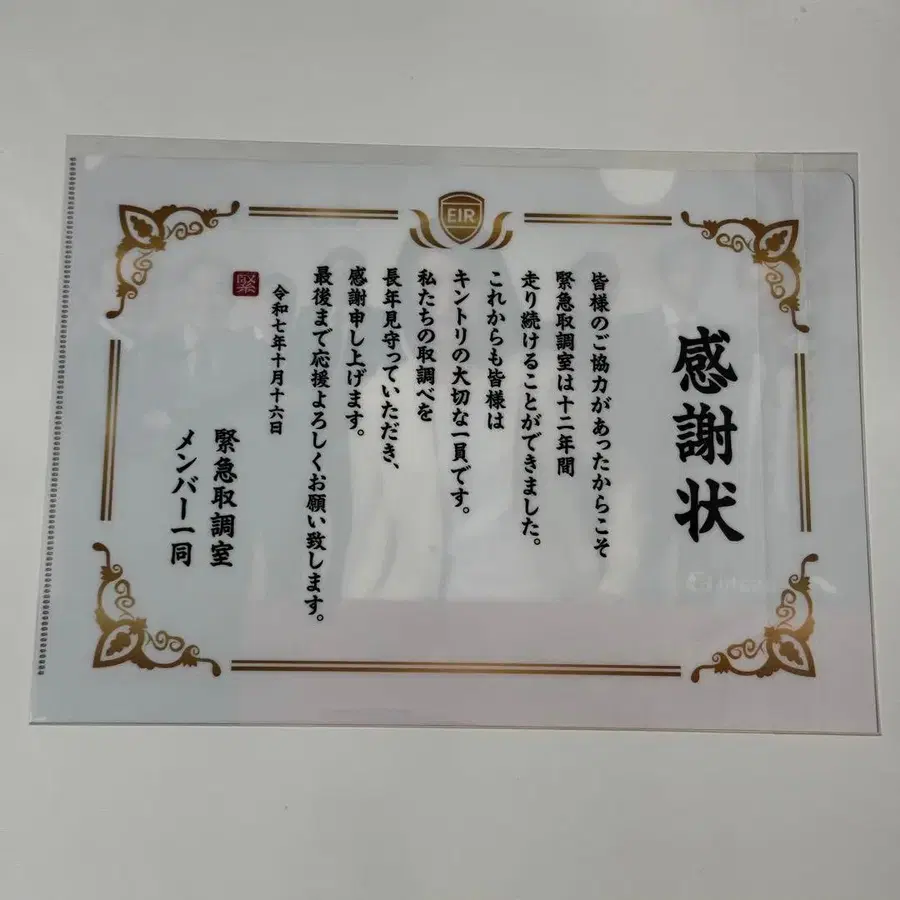 EIR
感謝状
皆様のご協力があったからこそ
緊急取調室は十二年間
走り続けることができました。
これからも皆様は
キントリの大切な一員です。
私たちの取調べを
長年見守っていただき、
感謝申し上げます。
最後まで応援よろしくお願い致します。
令和七年十月十六日
緊急取調室
メンバー一同